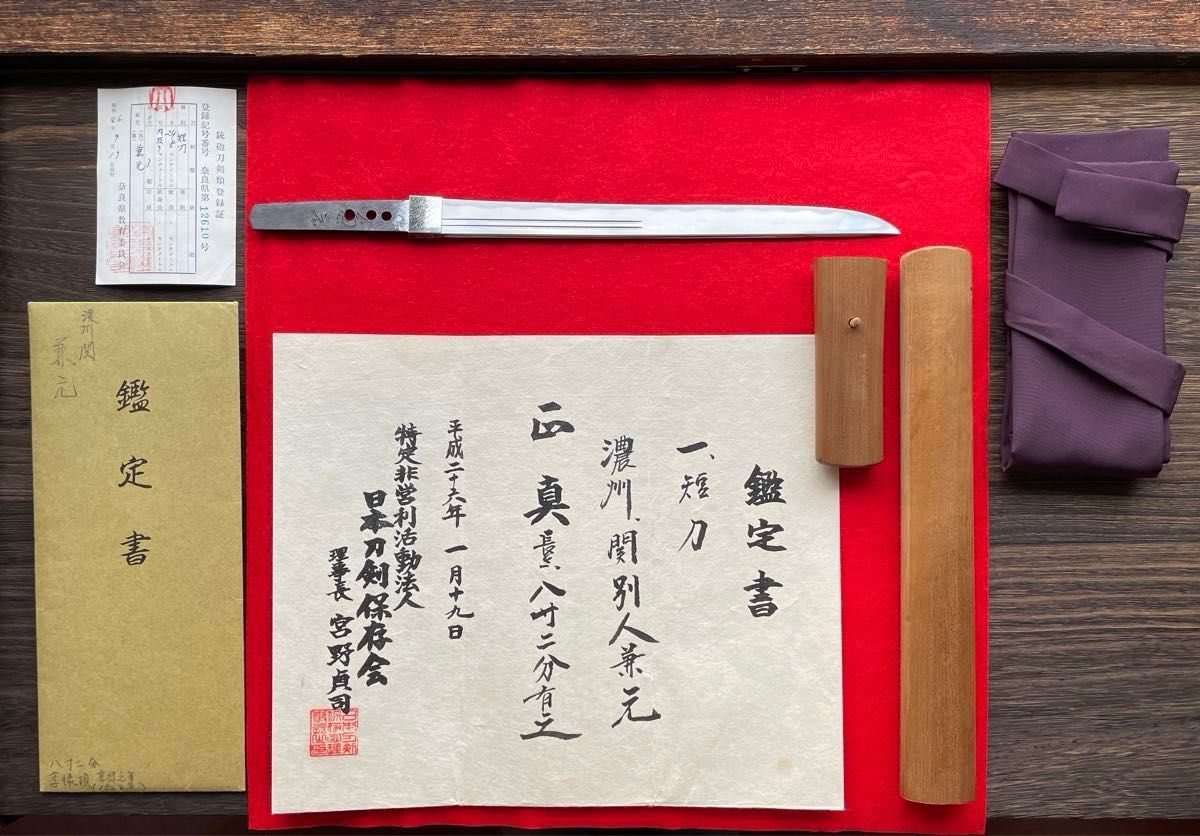 銃砲刀剣類登録証
登録記号番号 奈良県第12610号
短刀
兼元
奈良県教育委員会
濃州関
兼元
鑑定書
八寸二分
鑑定書
一、短刀
濃州、関別人兼元
正真 長サ八寸二分有之
平成二十六年 一月十九日
特定非営利活動法人
日本刀剣保存会
理事長 宮野貞司